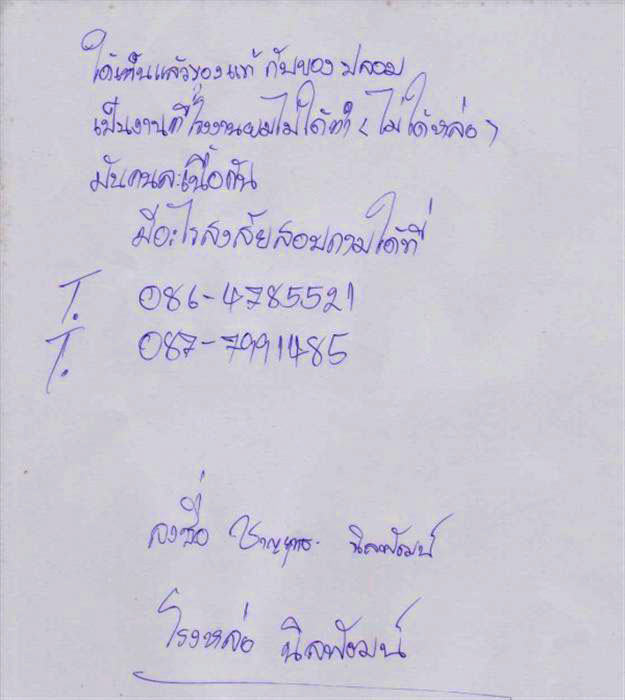 ได้เห็นแล้วของแท้ กับของ ปลอม
เป็นงานที่โรงงานผมไม่ได้ทำ (ไม่ได้หล่อ)
มันคนละเนื้อกัน
มีอะไรสงสัยสอบถามได้ที่
T. 086-4785521
T. 087-7991485
ลงชื่อ ชาญยุทธ นิลพัฒน์
โรงหล่อ นิลพัฒน์